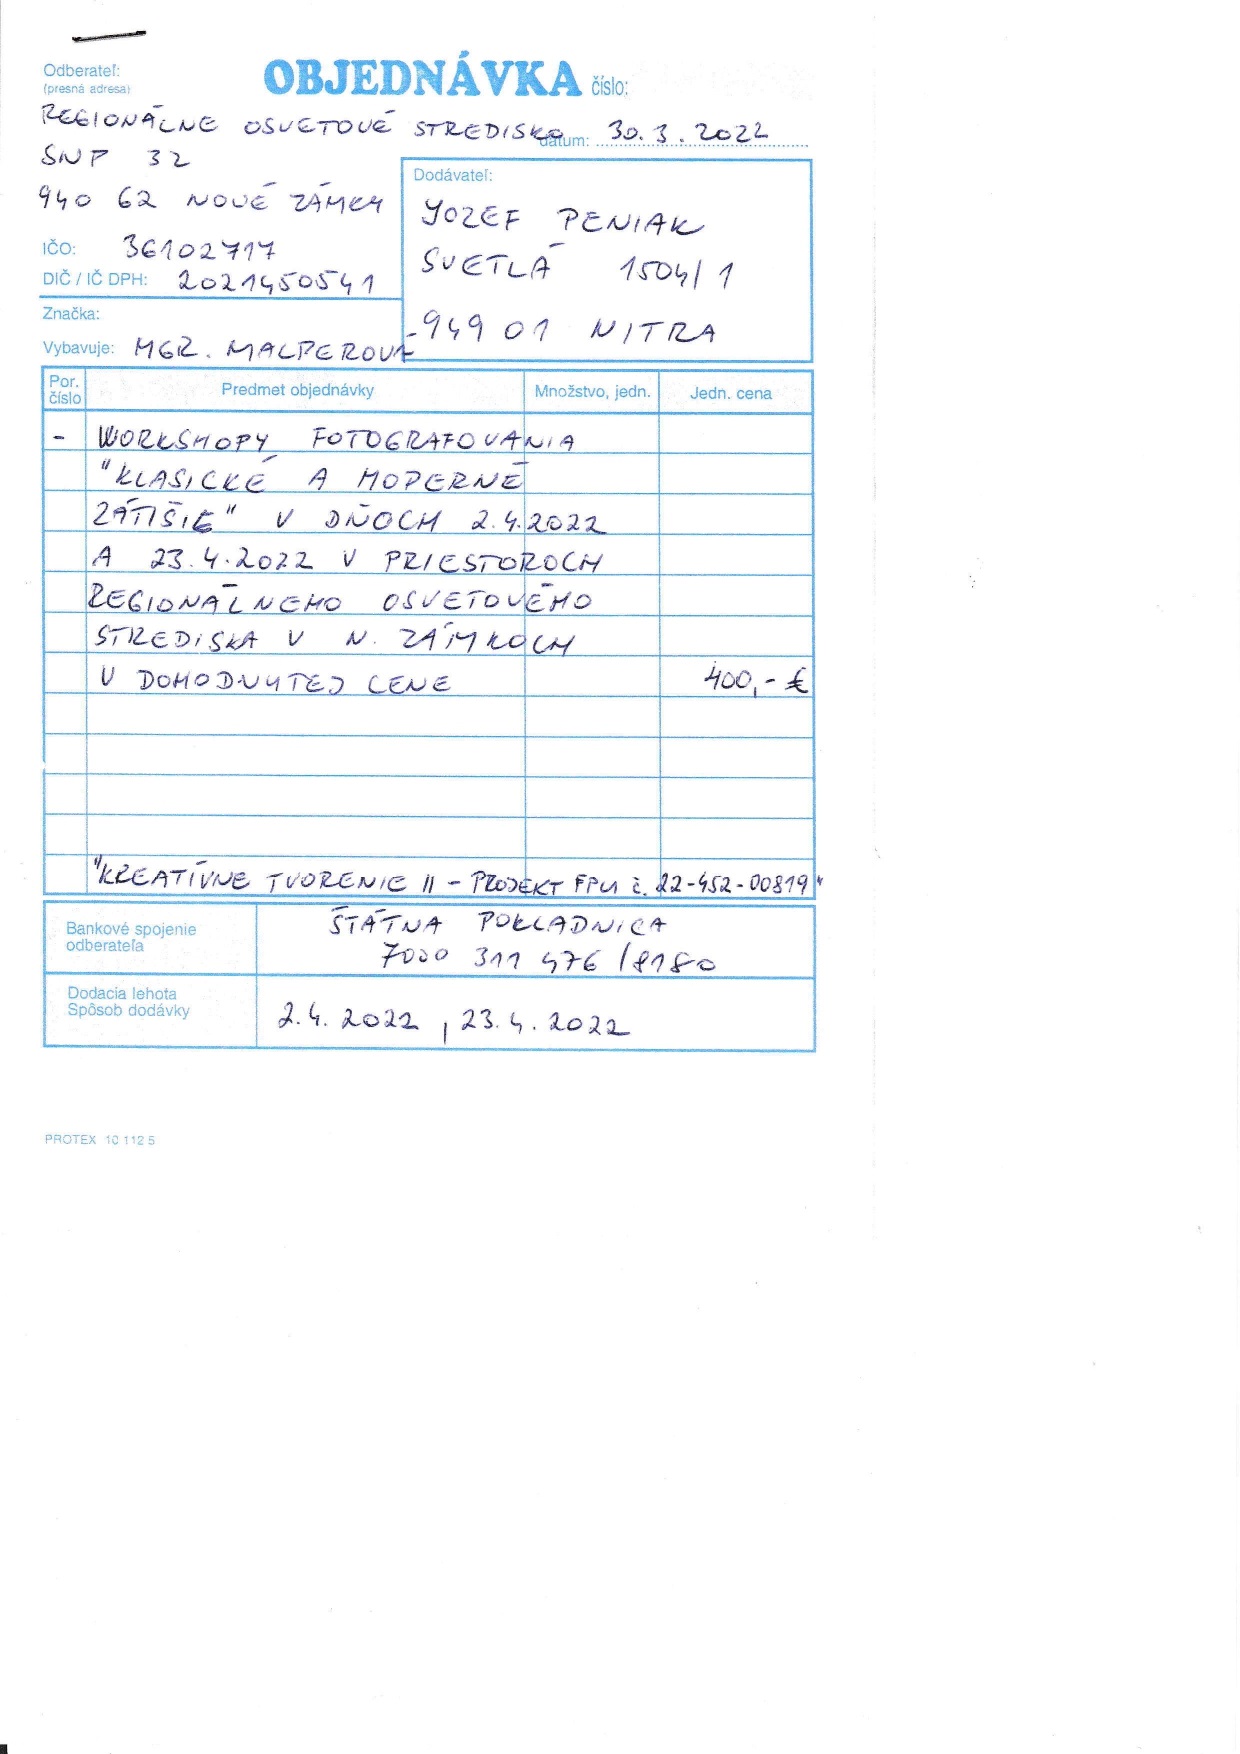 Odberateľ:
(presná adresa)
OBJEDNÁVKA číslo:
REGIONÁLNE OSVETOVÉ STREDISKO
dátum: 30.3.2022
SNP 32
940 62 NOVÉ ZÁMKY
IČO: 36102717
DIČ / IČ DPH: 2021450541
Značka:
Vybavuje: MGR. MALPEROVÁ
Dodávateľ:
JOZEF PENIAK
SVETLÁ 1504/1
949 01 NITRA
Por. číslo Predmet objednávky Množstvo, jedn. Jedn. cena
- WORKSHOPY FOTOGRAFOVANIA
"KLASICKÉ A MODERNÉ
ZÁTIŠIE" V DŇOCH 2.4.2022
A 23.4.2022 V PRIESTOROCH
REGIONÁLNEHO OSVETOVÉHO
STREDISKA V N. ZÁMKOCH
V DOHODNUTEJ CENE 400,- €
"KREATÍVNE TVORENIE II - PROJEKT FPU č. 22-452-00819"
Bankové spojenie
odberateľa
ŠTÁTNA POKLADNICA
7000 311 476 /8180
Dodacia lehota
Spôsob dodávky
2.4.2022, 23.4.2022
PROTEX 10 112 5